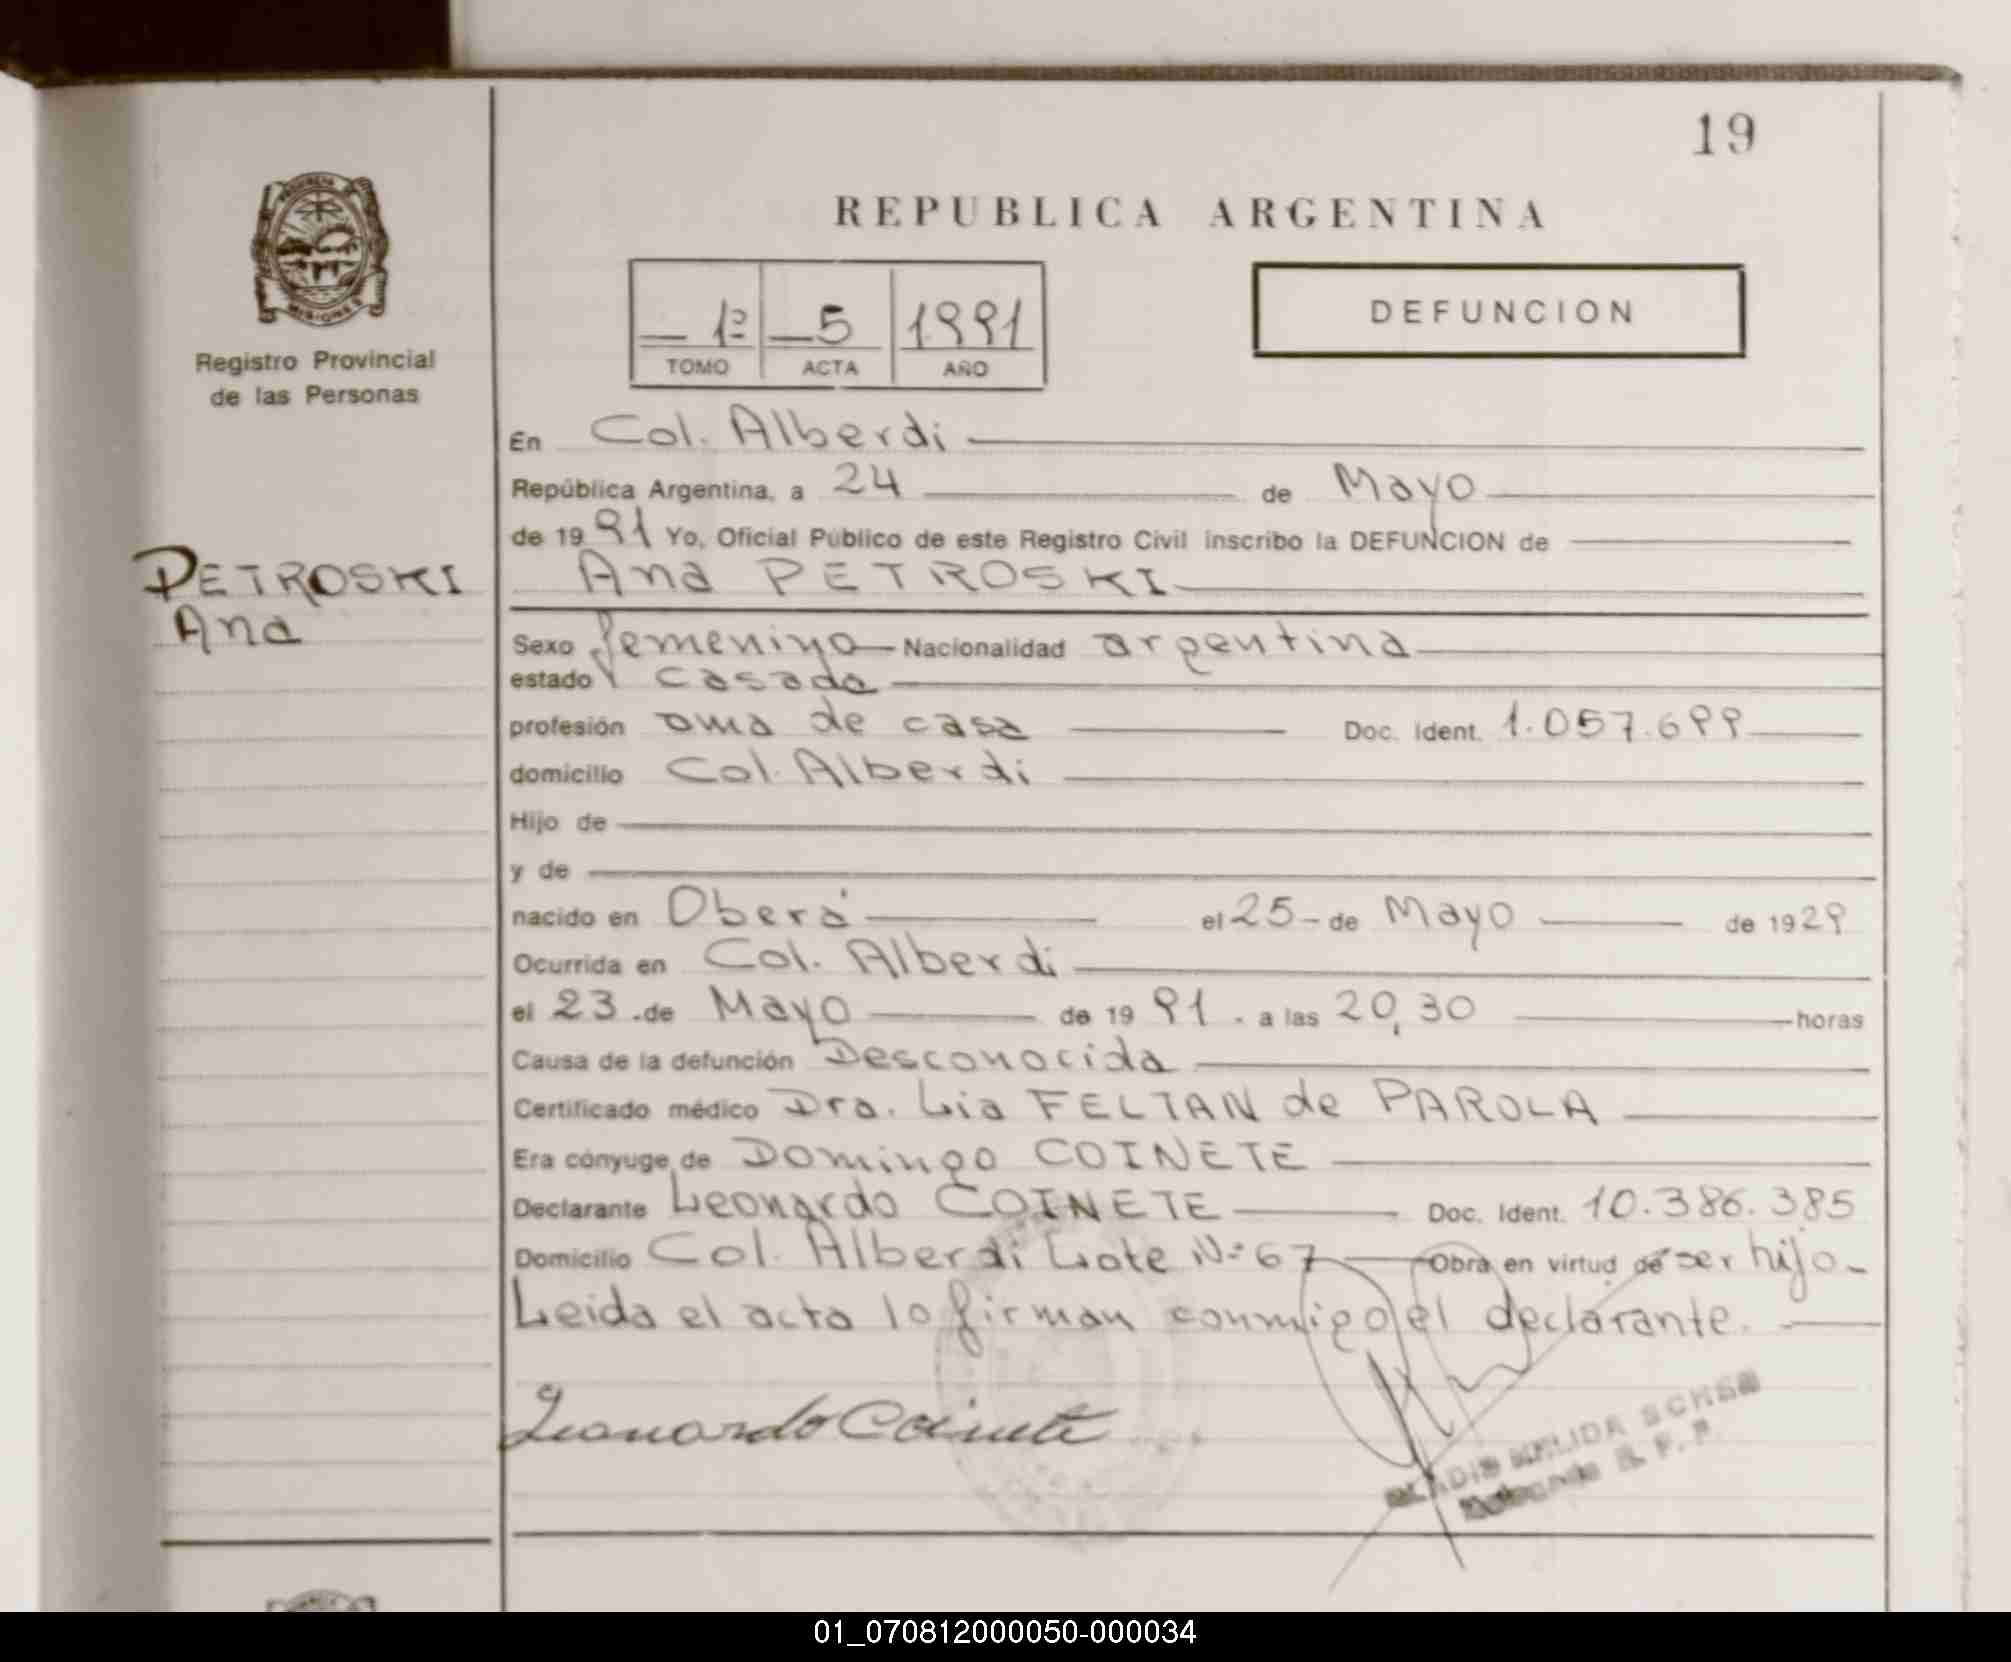 19
REPUBLICA ARGENTINA
PROVINCIA
MISIONES
Registro Provincial
de las Personas
1º 5 1991
TOMO ACTA AÑO
DEFUNCION
En Col. Alberdi
República Argentina, a 24 de Mayo
de 1991 Yo, Oficial Público de este Registro Civil inscribo la DEFUNCION de
PETROSKI
Ana
Ana PETROSKI
Sexo femenino Nacionalidad argentina
estado casada
profesión ama de casa Doc. Ident. 1.057.699
domicilio Col. Alberdi
Hijo de
y de
nacido en Oberá el 25 de Mayo de 1929
Ocurrida en Col. Alberdi
el 23 de Mayo de 1991. a las 20,30 horas
Causa de la defunción Desconocida
Certificado médico Dra. Lia FELTAN de PAROLA
Era cónyuge de Domingo COINETE
Declarante Leonardo COINETE Doc. Ident. 10.386.385
Domicilio Col. Alberdi Lote Nº 67 Obra en virtud de ser hijo
Leida el acta lo firman conmigo el declarante.
Leonardo Coinete
01_070812000050-000034